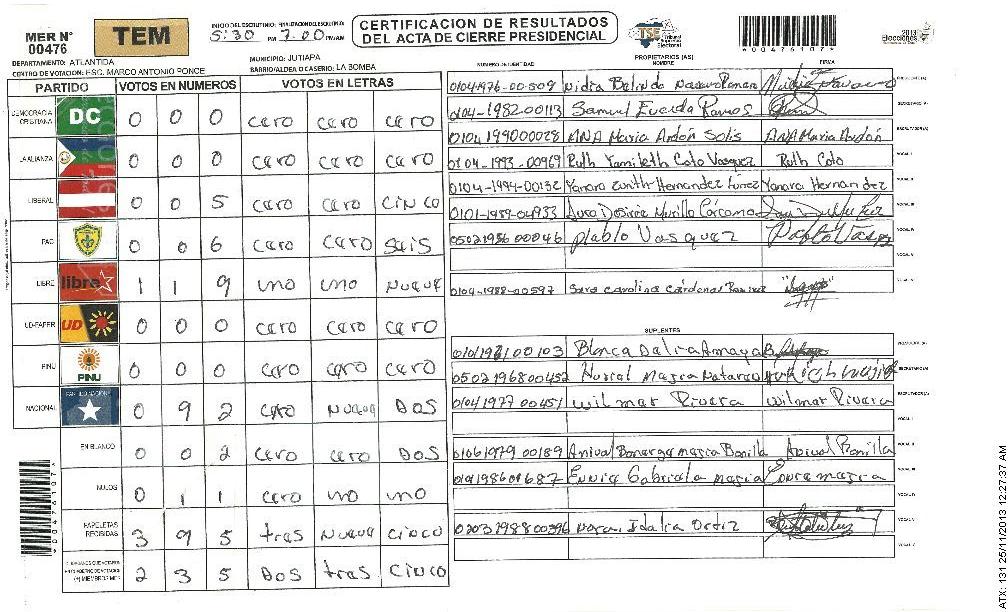 MER N° 00476
TEM
INICIO DEL ESCRUTINIO: 5:30 PM
7:00 PM/AM
CERTIFICACION DE RESULTADOS
DEL ACTA DE CIERRE PRESIDENCIAL
TSE Tribunal Supremo Electoral
*00476107*
2013 Elecciones
DEPARTAMENTO: ATLANTIDA
MUNICIPIO: JUTIAPA
CENTRO DE VOTACION: ESC. MARCO ANTONIO PONCE
BARRIO/ALDEA O CASERIO: LA BOMBA
PARTIDO VOTOS EN NUMEROS VOTOS EN LETRAS
DEMOCRACIA CRISTIANA DC 0 0 0 cero cero cero
LA ALIANZA 0 0 0 cero cero cero
LIBERAL 0 0 5 cero cero cinco
PAC 0 0 6 cero cero seis
LIBRE libre 1 1 9 uno uno nueve
UD-FAPER UD 0 0 0 cero cero cero
PINU PINU 0 0 0 cero cero cero
NACIONAL PARTIDO NACIONAL 0 9 2 cero nueve dos
EN BLANCO 0 0 2 cero cero dos
NULOS 0 1 1 cero uno uno
PAPELETAS RECIBIDAS 3 9 5 tres nueve cinco
2 3 5 dos tres cinco
NUMERO DE IDENTIDAD PROPIETARIOS (AS) NOMBRE FIRMA
01041976-00509 PRESIDENTE (A)
0104-1982-00113 Samuel Ramos SECRETARIO (A)
0104199000028 ANA Maria Ardón Solis ANA Maria Ardón ESCRUTADOR (A)
0104-1993-00969 Ruth Yamileth Coto Vasquez Ruth Coto VOCAL I
0104-1994-00132 Yanara Hernandez Yanara Hernandez VOCAL II
0101-1989-04933 Murillo Cárcamo VOCAL III
0502195600046 Pablo Vasquez VOCAL IV
0104-1988-00597 Sara Carolina Cárdenas Ramirez
SUPLENTES
Blanca Dalia Amaya
0502196800452
0104197700451 Wilmar Rivera Wilmar Rivera ESCRUTADOR (A)
VOCAL I
0106197900189 Bonilla Bonilla
Gabriela
Idalia Ortiz
ATX: 131 25/11/2013 12:27:37 AM
*00476107*